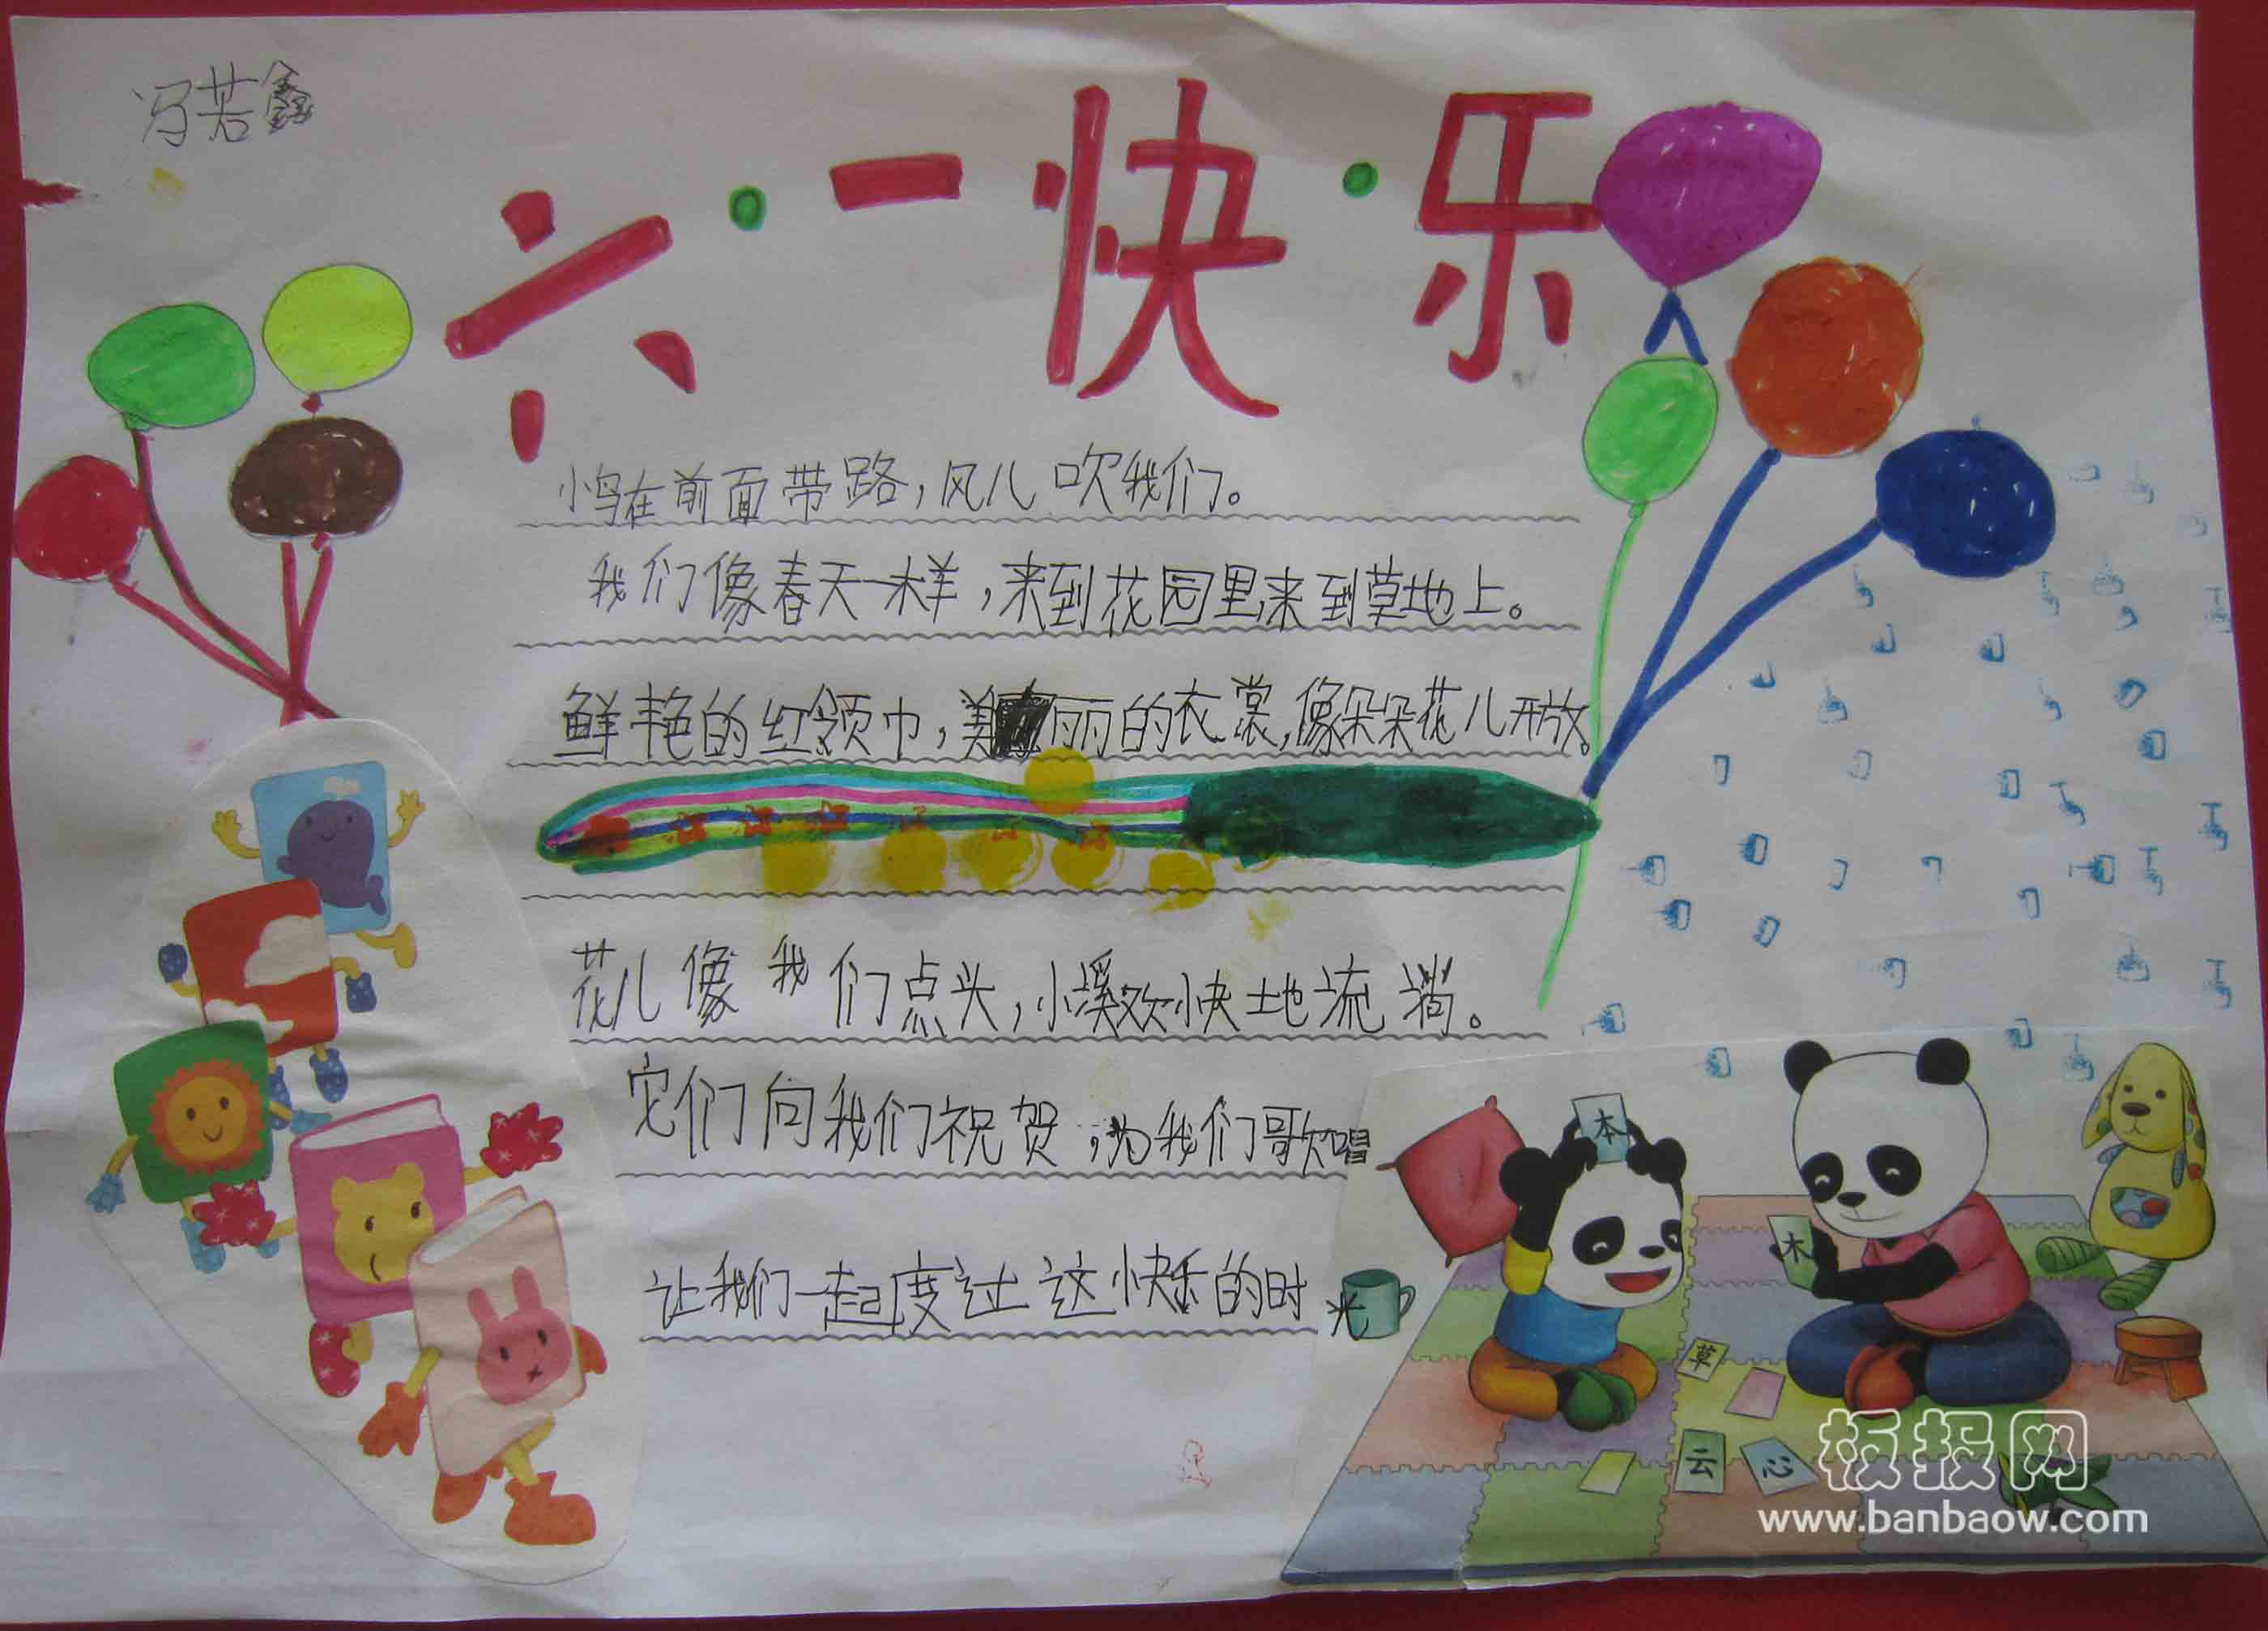 冯若鑫
六·一快·乐
小鸟在前面带路，风儿吹我们。
我们像春天一样，来到花园里来到草地上。
鲜艳的红领巾，美丽的衣裳，像朵朵花儿开放。
花儿像我们点头，小溪欢快地流淌。
它们向我们祝贺，为我们歌唱
让我们一起度过这快乐的时光
本
木
草
云
心
板报网
www.banbaow.com